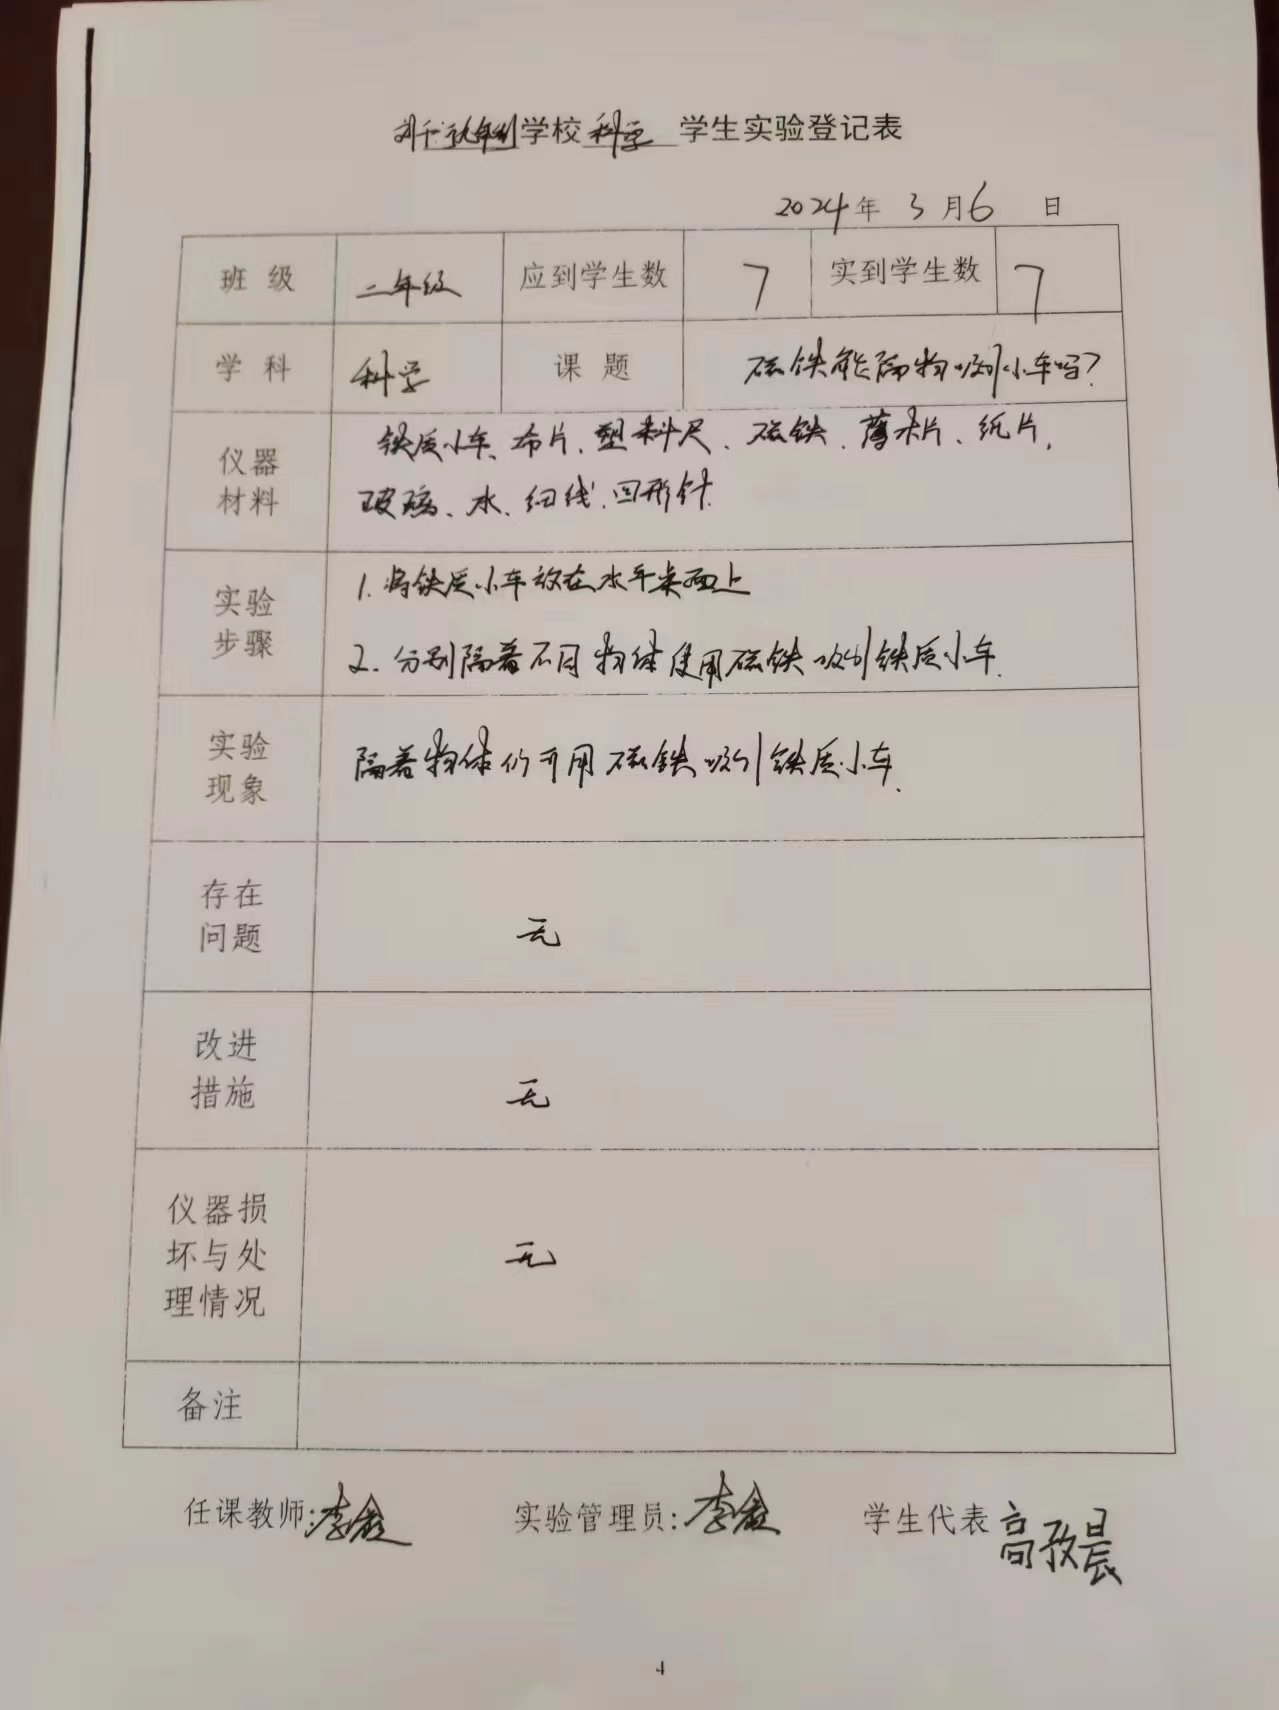 学校 科学 学生实验登记表
2024年 3月6 日
班 级 二年级 应到学生数 7 实到学生数 7
学 科 科学 课 题 磁铁能隔物吸引小车吗?
仪器
材料
铁质小车、布片、塑料尺、磁铁、薄木片、纸片、
玻璃、水、细线、回形针.
实验
步骤
1. 将铁质小车放在水平桌面上
2. 分别隔着不同物体使用磁铁吸引铁质小车.
实验
现象
隔着物体仍可用磁铁吸引铁质小车.
存在
问题
无
改进
措施
无
仪器损
坏与处
理情况
无
备注
任课教师:李鑫 实验管理员:李鑫 学生代表 高孜晨
4